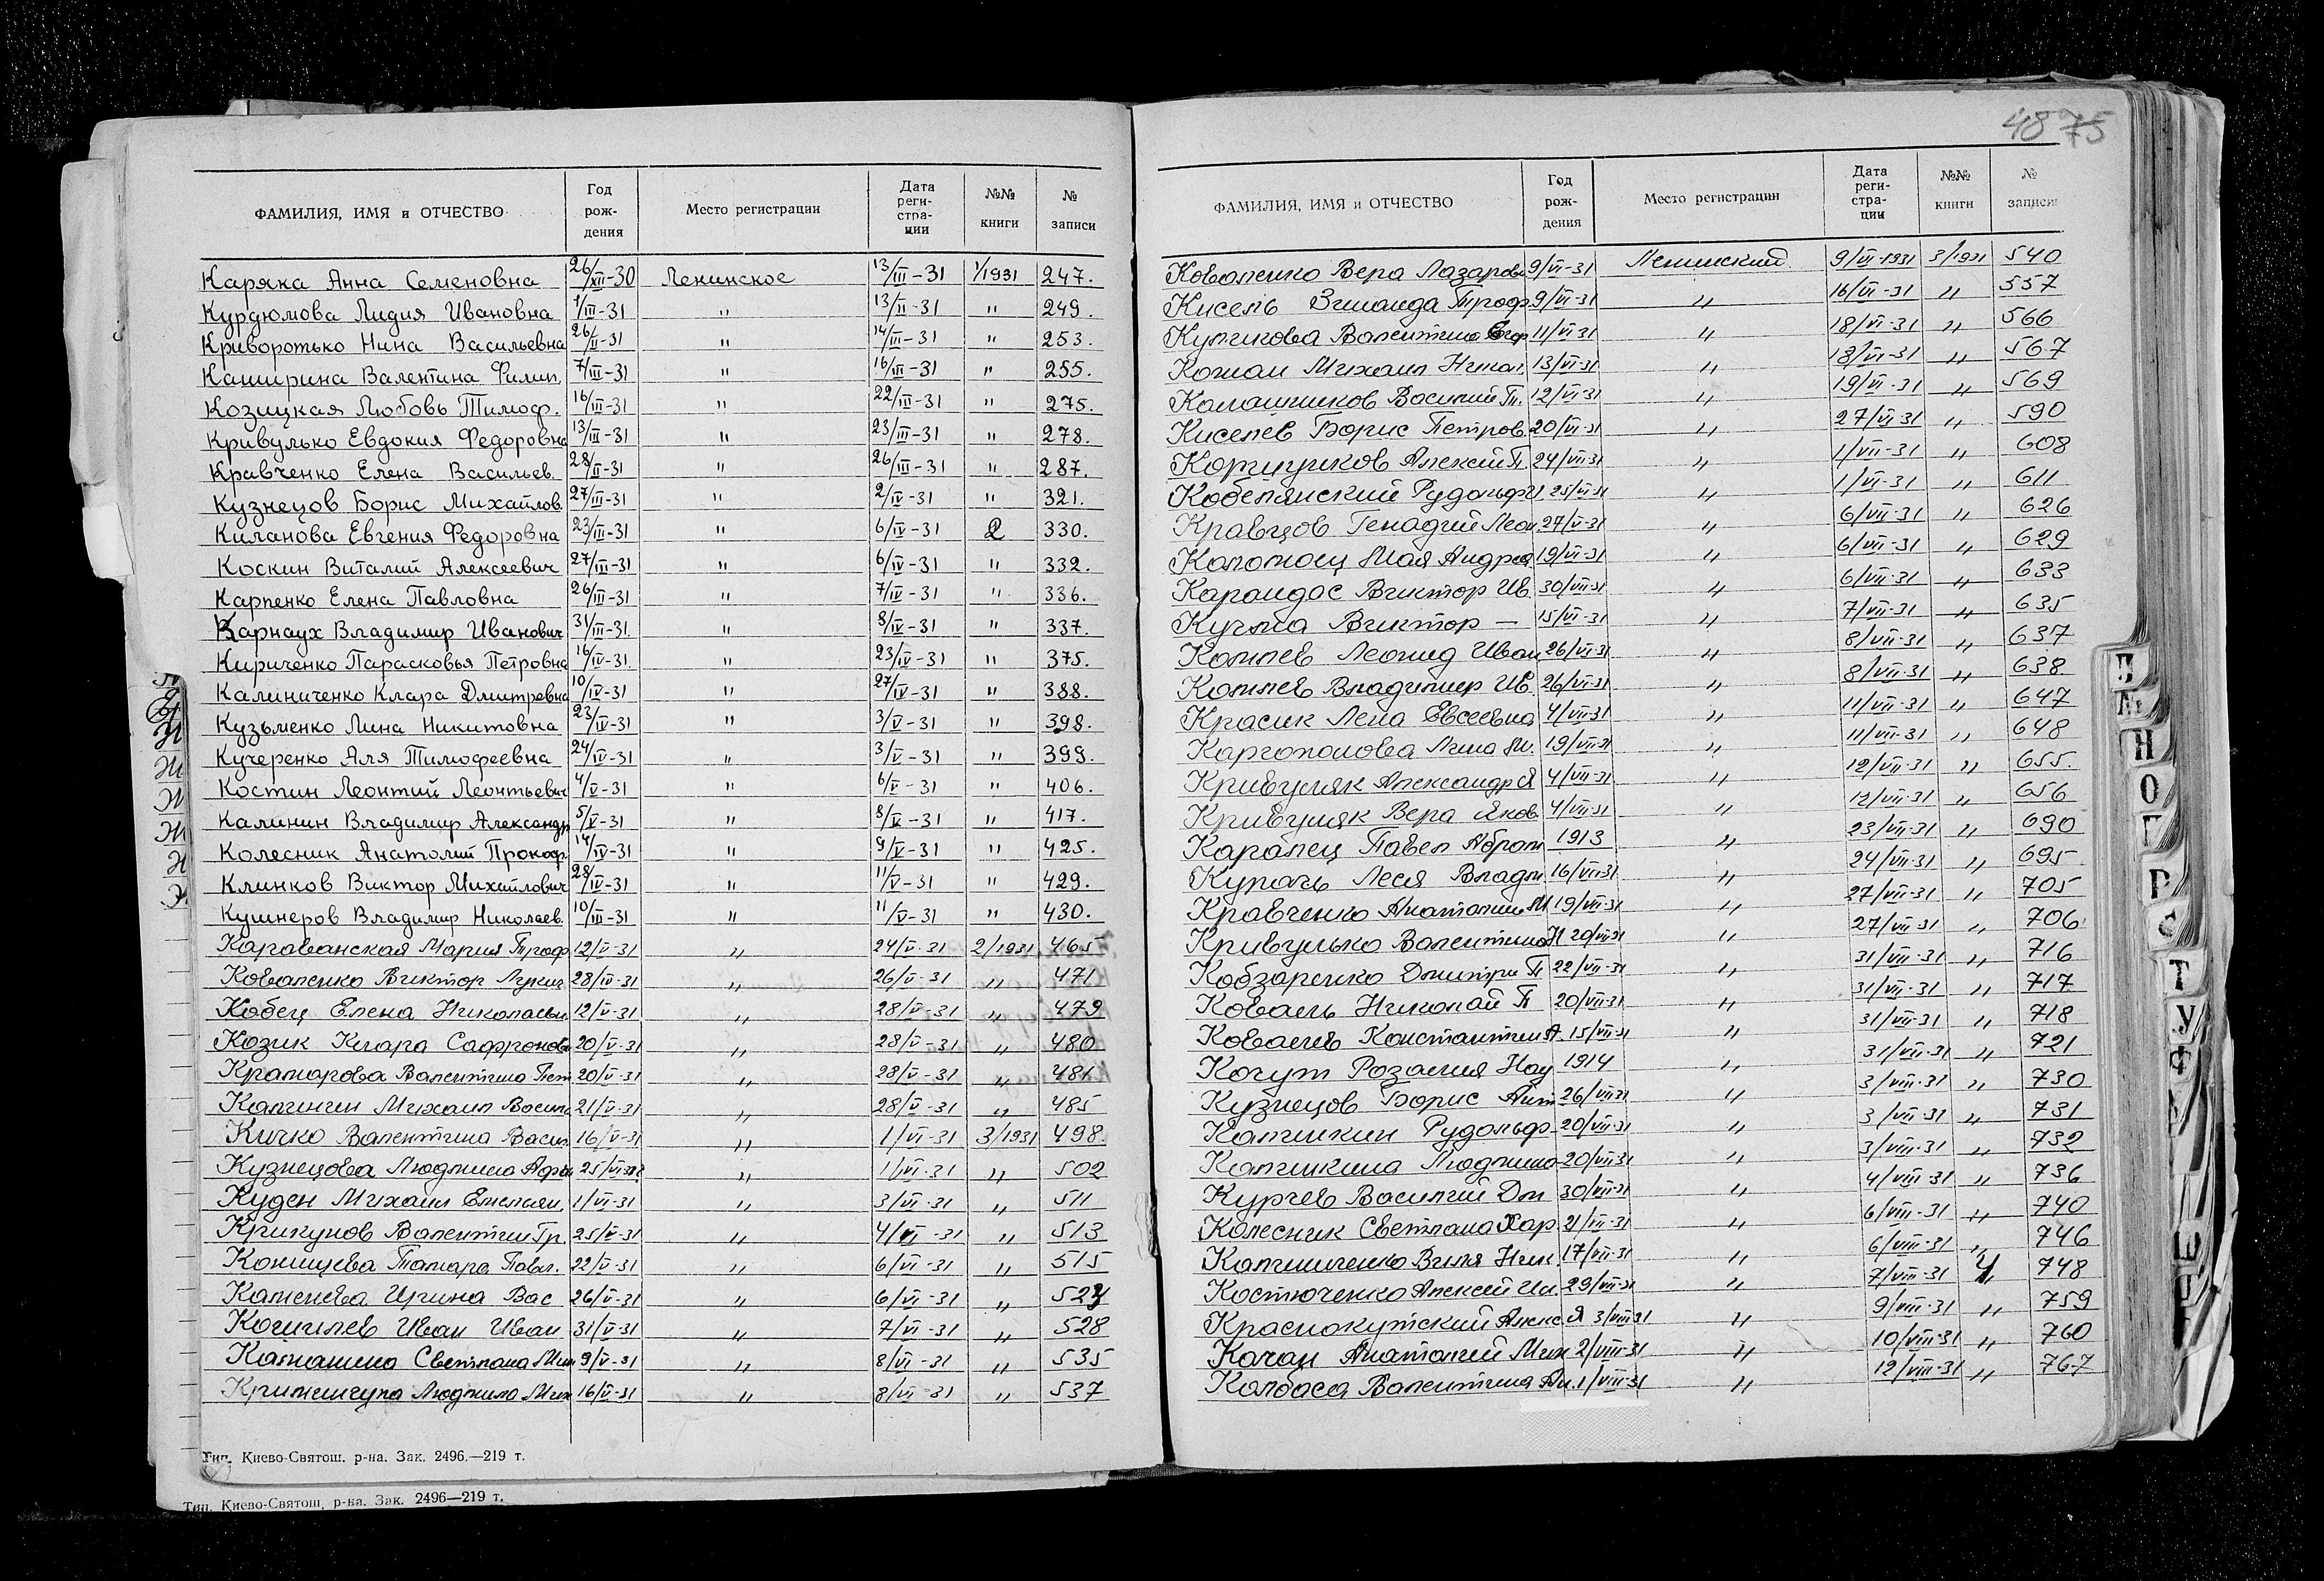 48 75
ФАМИЛИЯ, ИМЯ и ОТЧЕСТВО Год рождения Место регистрации Дата регистрации №№ книги № записи
Каряка Анна Семеновна 26/XII-30 Ленинское 13/III-31 1/1931 247.
Курдюмова Лидия Ивановна 1/III-31 " 13/II-31 " 249.
Криворотько Нина Васильевна 26/II-31 " 14/III-31 " 253.
Каширина Валентина Филип. 7/III-31 " 16/III-31 " 255.
Козицкая Любовь Тимоф. 16/III-31 " 22/III-31 " 275.
Кривулько Евдокия Федоровна 13/III-31 " 23/III-31 " 278.
Кравченко Елена Васильев. 28/II-31 " 26/III-31 " 287.
Кузнецов Борис Михайлов. 27/III-31 " 2/IV-31 " 321.
Киланова Евгения Федоровна 23/III-31 " 6/IV-31 2 330.
Коскин Виталий Алексеевич 27/III-31 " 6/IV-31 " 332.
Карпенко Елена Павловна 26/III-31 " 7/IV-31 " 336.
Карнаух Владимир Иванович 31/III-31. " 8/IV-31 " 337.
Кириченко Парасковья Петровна 16/IV-31. " 23/IV-31 " 375.
Калиниченко Клара Дмитревна 10/IV-31 " 27/IV-31 " 388.
Кузьменко Лина Никитовна 23/IV-31 " 3/V-31 " 398.
Кучеренко Аля Тимофеевна 24/IV-31 " 3/V-31 " 399.
Костин Леонтий Леонтьевич 4/V-31 " 6/V-31 " 406.
Калинин Владимир Александр 5/V-31 " 8/V-31 " 417.
Колесник Анатолий Прокоф. 14/IV-31 " 9/V-31 " 425.
Клинков Виктор Михайлович 28/IV-31 " 11/V-31 " 429.
Кушнеров Владимир Николаев. 10/III-31 " 11/V-31 " 430.
Караванская Мария Троф 12/V-31 " 24/V-31 2/1931 465
Коваленко Виктор Лукич 28/IV-31 " 26/V-31 " 471
Кобец Елена Николаевн 12/V-31 " 28/V-31 " 479
Козик Клара Сафронов 20/V-31 " 28/V-31 " 480
Крамарова Валентина Пет 20/V-31 " 28/V-31 " 481
Калинин Михаил Васил 21/V-31 " 28/V-31 " 485
Кичко Валентина Васил. 16/V-31 " 1/VI-31 3/1931 498.
Кузнецова Людмила Афан 25/VI " 1/VI-31 " 502
Куден Михаил Емельян. 1/VI-31 " 3/VI-31 " 511
Крикунов Валентин Гр. 25/V-31 " 4/VI-31 " 513
Конищева Тамара Павл. 22/V-31 " 6/VI-31 " 515
Каменева Ирина Вас 26/V-31 " 6/VI-31 "
Кошилев Иван Иван 31/V-31 " 7/VI-31 " 528
Калашина Светлана Мих 9/V-31 " 8/VI-31 " 535
Людмила Мих 16/V-31 " 8/VI-31 " 537
Тип. Киево-Святош. р-на. Зак. 2496.—219 т.
Тип. Киево-Святош. р-на. Зак. 2496—219 т.
ФАМИЛИЯ, ИМЯ и ОТЧЕСТВО Год рождения Место регистрации Дата регистрации №№ книги № записи
Коваленко Вера Лазаров 9/VI-31 Ленинский. 9/VI-1931 3/1931 540
Кисель Зинаида Троф. 9/VI-31 " 16/VI-31 " 557
Куликова Валентина Егор 11/VI-31 " 18/VI-31 " 566
Кожан Михаил Никол. 13/VI-31 " 18/VI-31 " 567
Калашников Василий П. 12/VI-31 " 19/VI-31 " 569
Киселев Борис Петров. 20/VI-31 " 27/VI-31 " 590
Алексей П 24/VII-31 " 1/VII-31 " 608
Кобелянский Рудольф 25/VI-31 " 1/VII-31 " 611
Кравцов Генадий Леон. 27/V-31 " 6/VII-31 " 626
Коломоец Мая Андрея 19/VI-31 " 6/VII-31 " 629
Карандас Виктор Ив. 30/VII-31 " 6/VII-31 " 633
Кучма Виктор — 15/VI-31 " 7/VII-31 " 635
Комлев Леонид Иван. 26/VI-31 " 8/VII-31 " 637
Комлев Владимир Ив. 26/VI-31 " 8/VII-31 " 638
Красик Лена Евсеевна 4/VII-31 " 11/VII-31 " 647
Каргополова Лина М. 19/VII-31 " 11/VII-31 " 648
Кривуляк Александр Я 4/VII-31 " 12/VII-31 " 655.
Кривуляк Вера Яков 4/VII-31 " 12/VII-31 " 656
Карапец Павел Абрам 1913 " 23/VII-31 " 690
Леся Влади 16/VII-31 " 24/VII-31 " 695
Кравченко Анатолий М 19/VII-31 " 27/VII-31 " 705
Кривулько Валентина Н 20/VII-31 " 27/VII-31 " 706
Кобзаренко Дмитри П 22/VII-31 " 31/VII-31 " 716
Коваль Николай П 20/VII-31 " 31/VII-31 " 717
Ковалев Константин А. 15/VII-31 " 31/VII-31 " 718
Когут Розалия Нау 1914 " 31/VII-31 " 721
Кузнецов Борис Ант 26/VII-31 " 3/VIII-31 " 730
Калинкин Рудольф 20/VII-31 " 3/VII-31 " 731
Калинкина Людмила 20/VII-31 " 3/VIII-31 " 732
Курчев Василий Дм 30/VII-31 " 4/VIII-31 " 736
Колесник Светлана Хар 21/VII-31 " 6/VIII-31 " 740
Калиниченко Виля Ник. 17/VII-31 " 6/VIII-31 " 746
Костюченко Алексей Ил. 29/VII-31 " 7/VIII-31 4 748
Краснокутский Алекс. Я 3/VIII-31 " 9/VIII-31 " 759
Качан Анатолий Мих 2/VIII-31 " 10/VIII-31 " 760
Колбаса Валентина Ан. 1/VIII-31 " 12/VIII-31 " 767
Л
М
Н
О
П
Р
С
Т
У
Ф
Ш